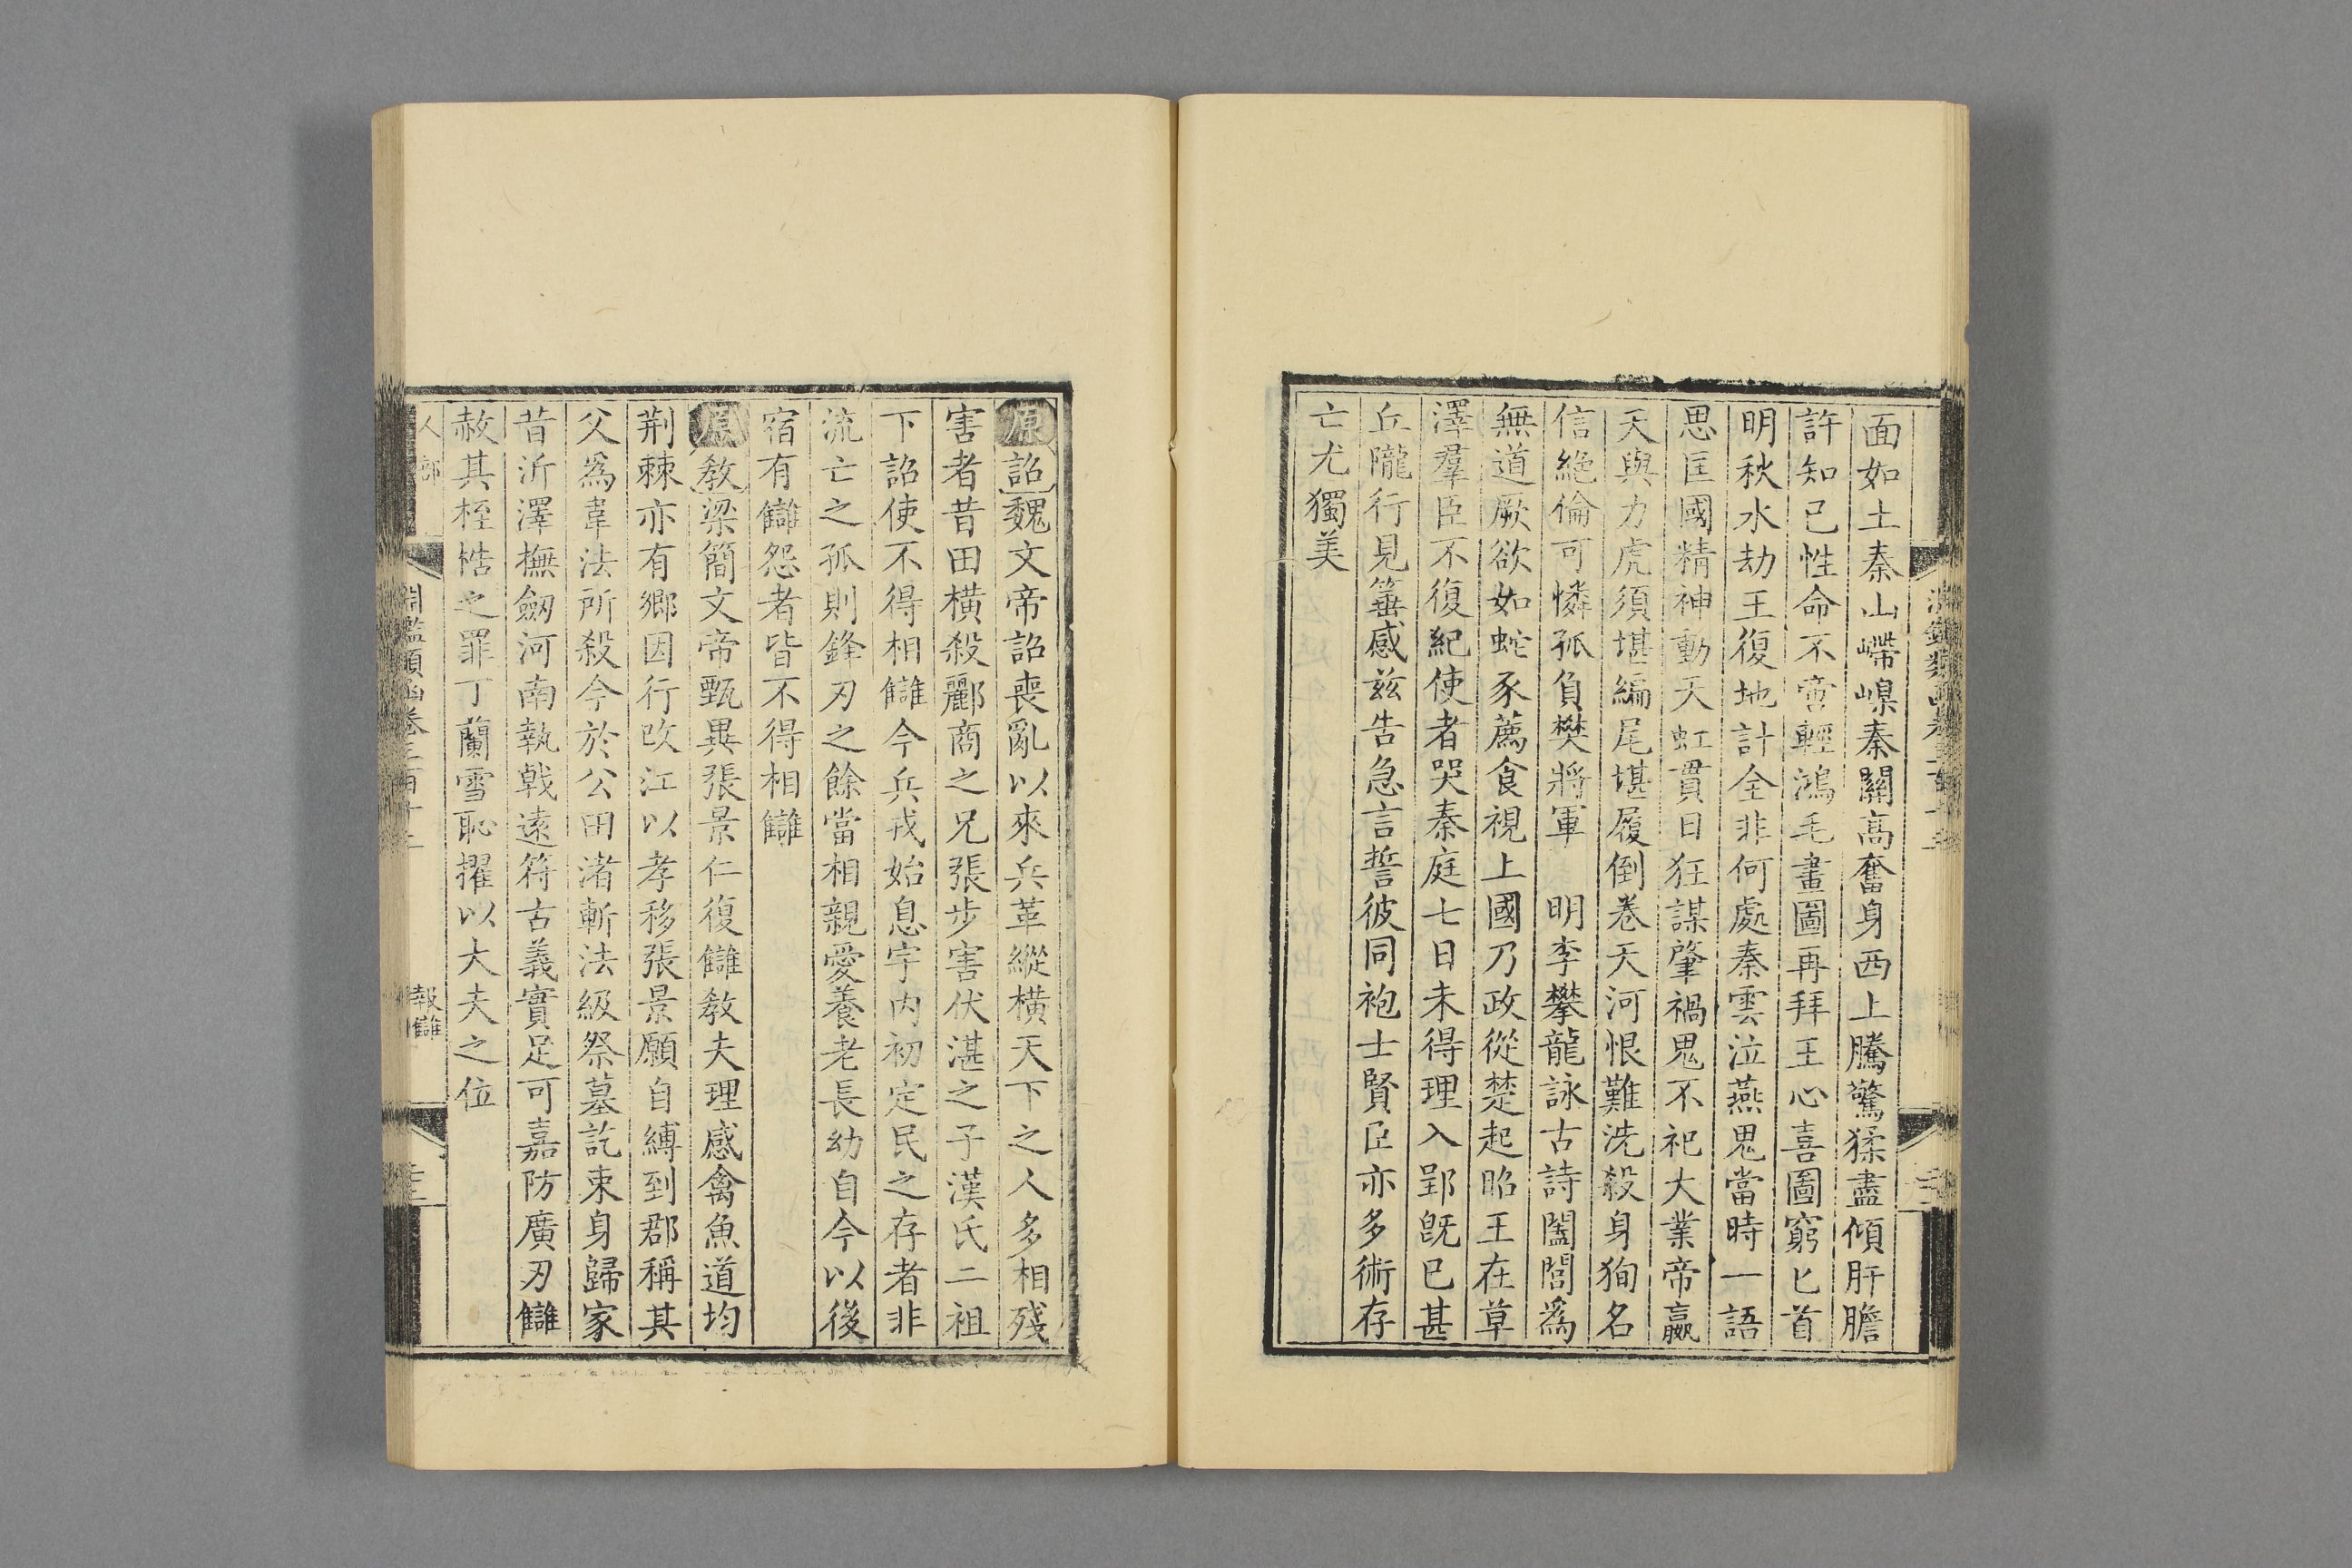 面如土秦山嵽嵲秦關高奮身西上騰驚猱盡傾肝膽
許知已性命不啻輕鴻毛畫圖再拜王心喜圖窮匕首
明秋水劫王復地計全非何處秦雲泣燕鬼當時一語
思匡國精神動天虹貫日狂謀肇禍鬼不祀大業帝嬴
天與力虎須堪編尾堪履倒卷天河恨難洗殺身狥名
信絶倫可憐孤負樊將軍　明李攀龍詠古詩闔閭爲
無道厥欲如蛇豕薦食視上國乃政從楚起昭王在草
澤羣臣不復紀使者哭秦庭七日未得理入郢旣已甚
丘隴行見箠感兹告急言誓彼同袍士賢臣亦多術存
亡尤獨美
原詔魏文帝詔喪亂以來兵革縱橫天下之人多相殘
害者昔田横殺酈商之兄張步害伏湛之子漢氏二祖
下詔使不得相讎今兵戎始息宇内初定民之存者非
流亡之孤則鋒刃之餘當相親愛養老長幼自今以後
宿有讎怨者皆不得相讎
原教梁簡文帝甄異張景仁復讎教夫理感禽魚道均
荆棘亦有鄉因行改江以孝移張景願自縛到郡稱其
父爲韋法所殺今於公田渚斬法級祭墓訖束身歸家
昔沂澤撫劒河南執戟遠符古義實足可嘉防廣刃讎
赦其桎梏之罪丁蘭雪恥擢以大夫之位
人部
淵鑑類函卷三百十二
報讎